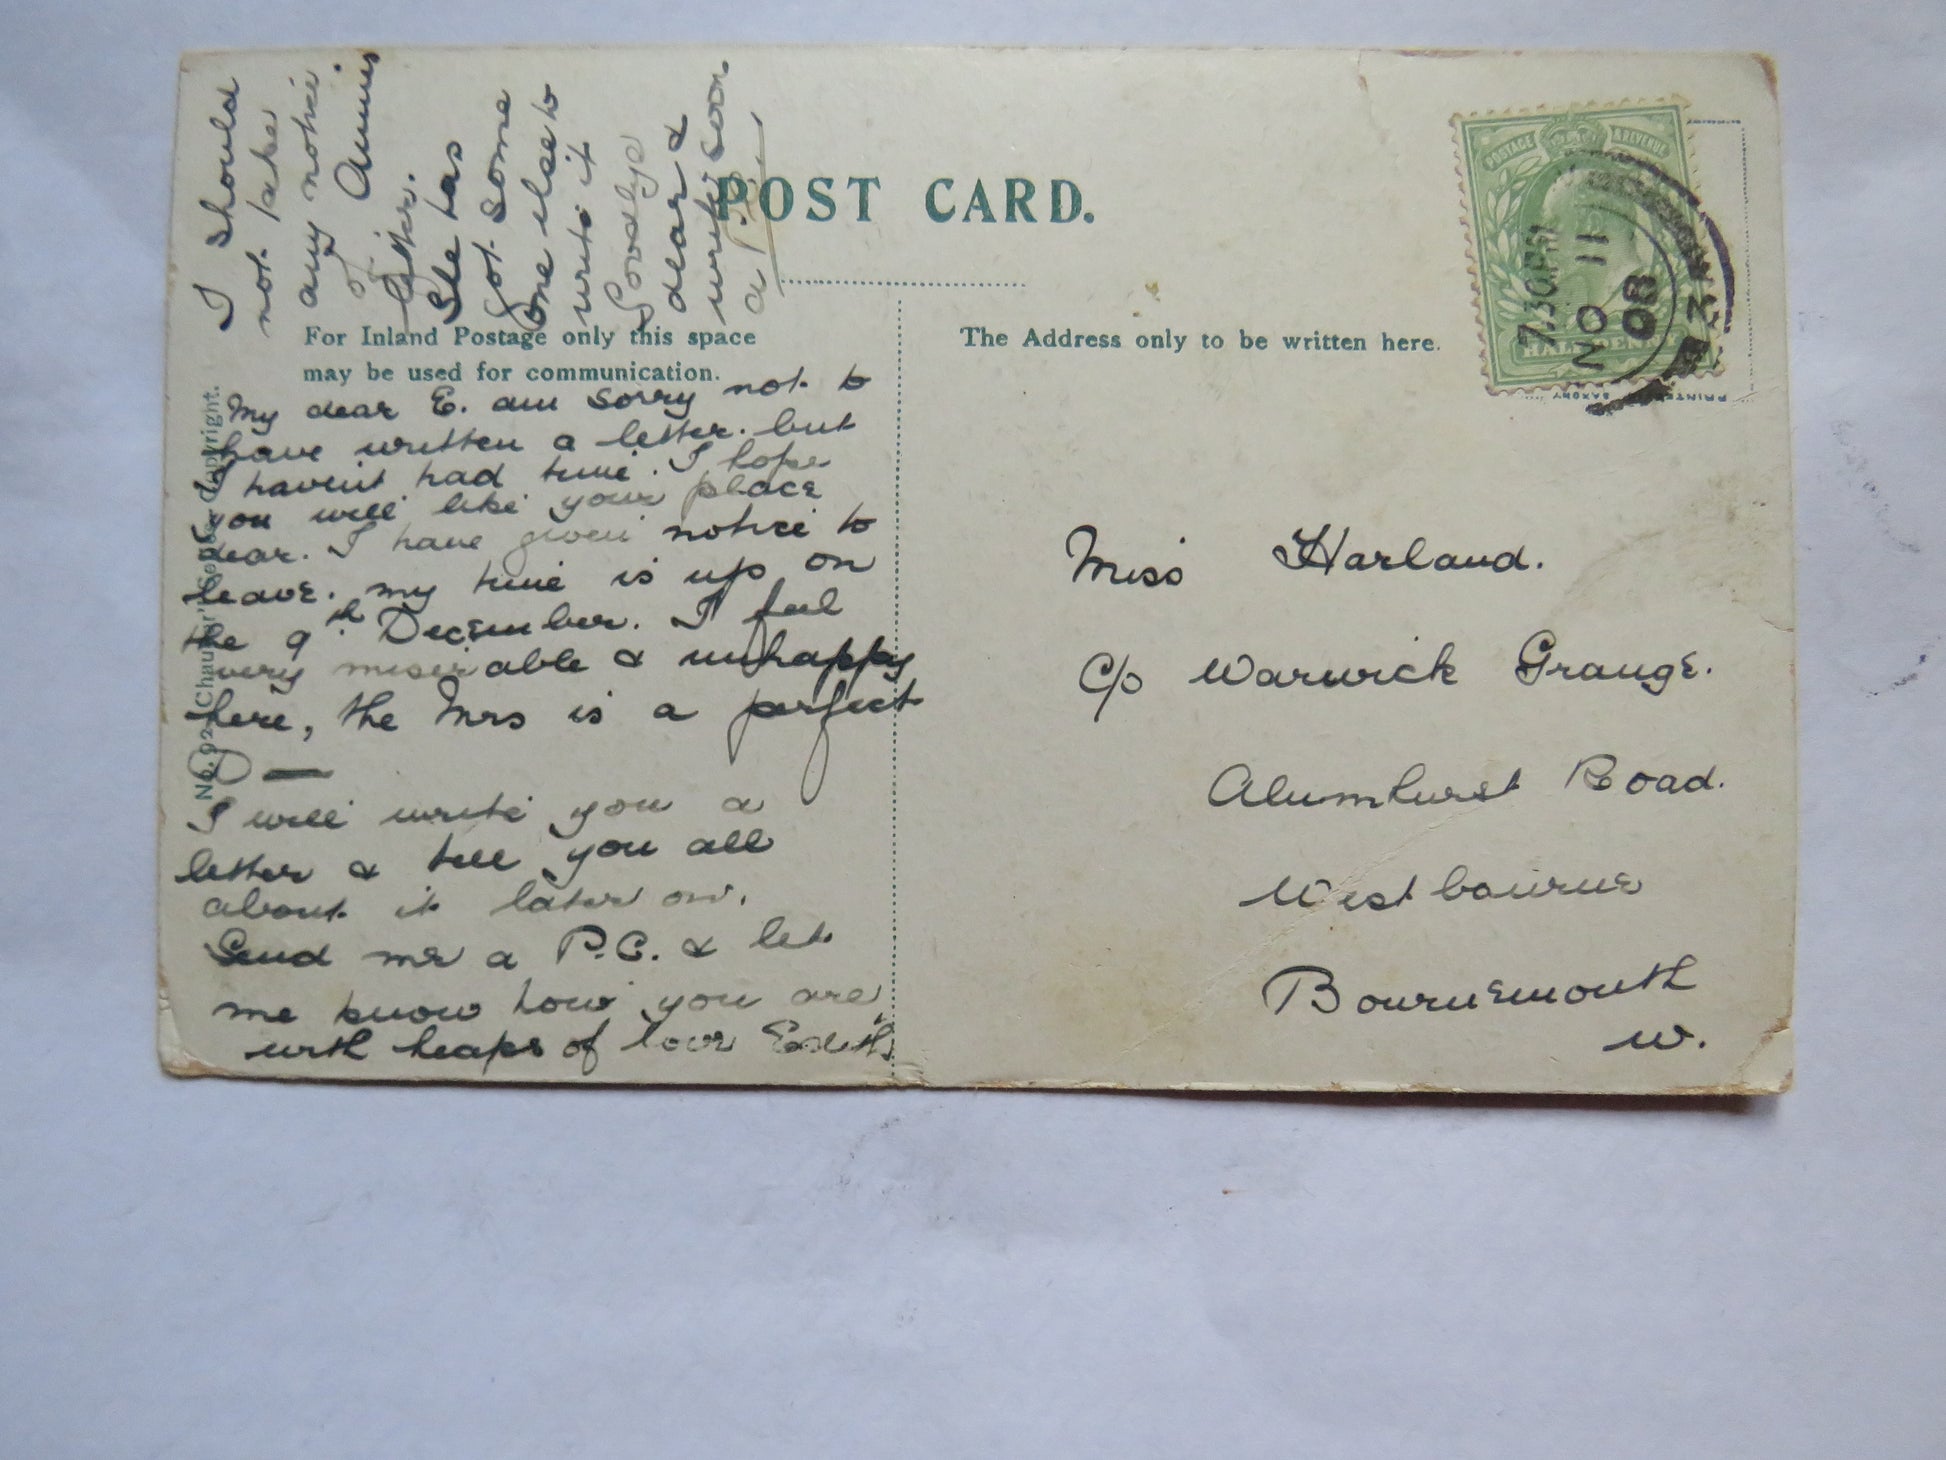 I should
not take
any notice
of Annies
letter.
She has
got some
one else to
write it
Goodbye
dear &
write soon.
a P.C.
POST CARD.
For Inland Postage only this space
may be used for communication.
The Address only to be written here.
POSTAGE REVENUE
HALFPENNY
7.30 PM
NO 11
08
PRINTED
SAXONY
My dear E. am sorry not to
have written a letter. but
I havent had time. I hope
you will like your place
dear. I have given notice to
leave. my time is up on
the 9th December. I feel
very miserable & unhappy
here, the Mrs is a perfect
D—
I will write you a
letter & tell you all
about it later on.
Send me a P.C. & let
me know how you are
with heaps of love Edith
Miss Harland.
C/o Warwick Grange.
Alumhurst Road.
Westbourne
Bournemouth
W.
Copyright.